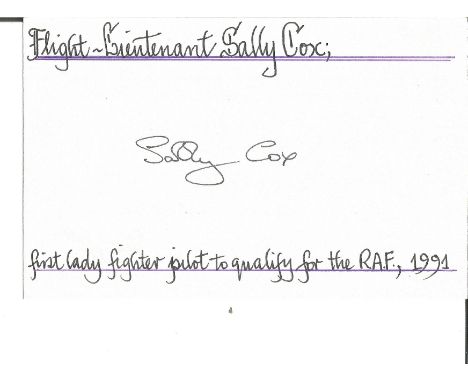 Flight-Lieutenant Sally Cox;
Sally Cox
first lady fighter pilot to qualify for the R.A.F., 1991